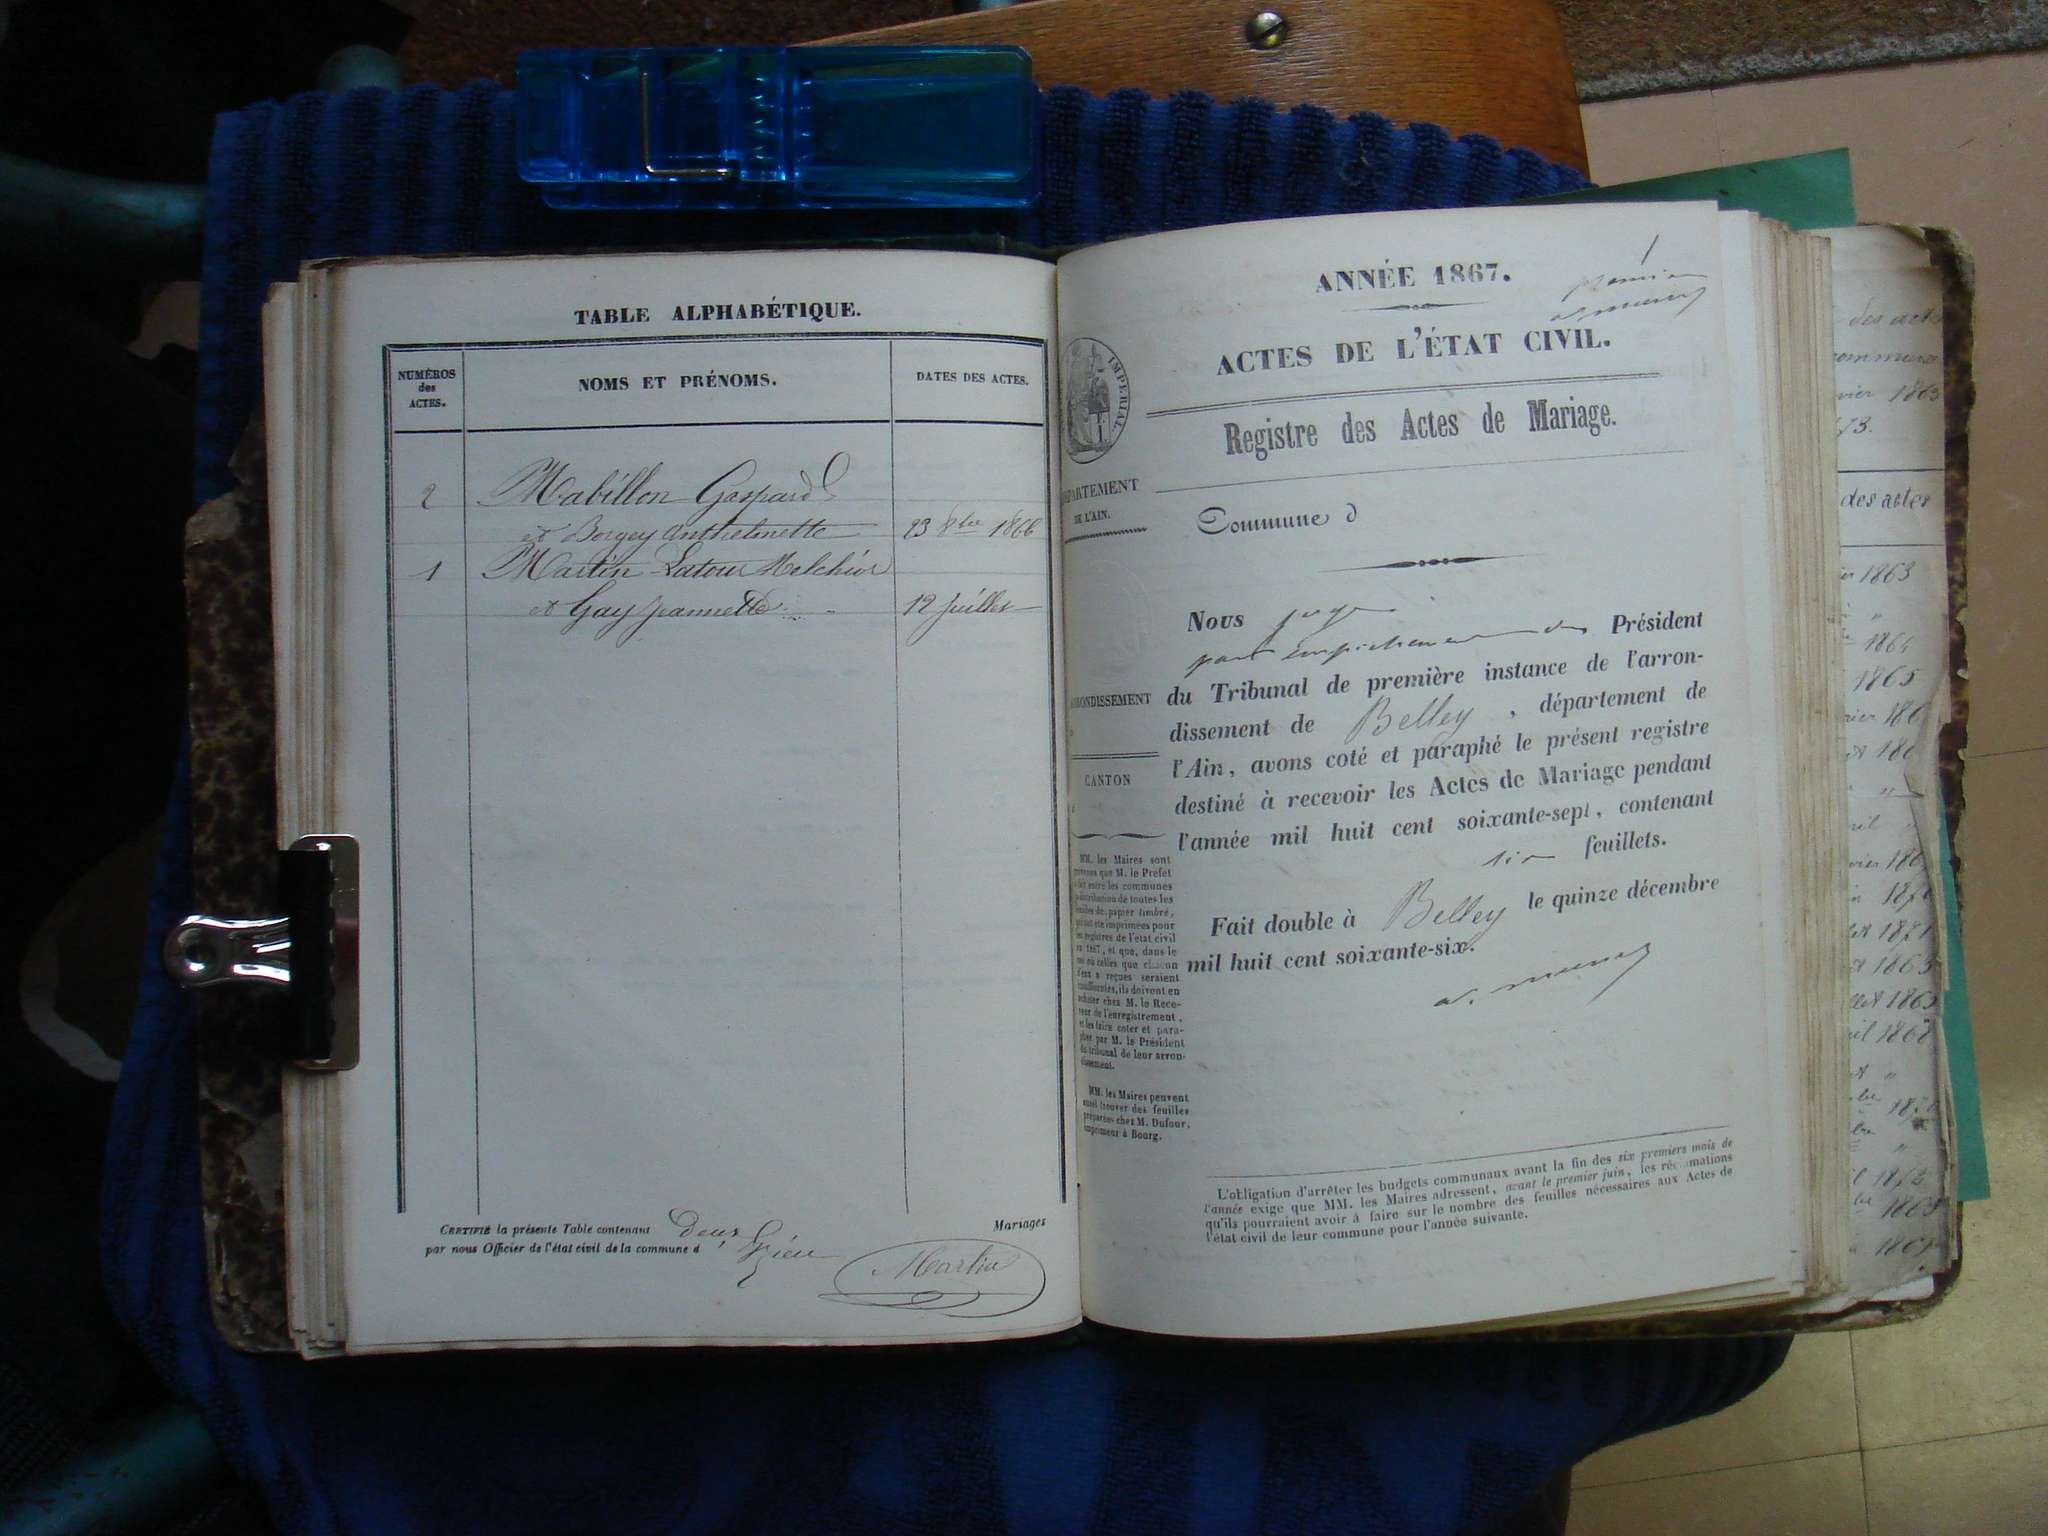 TABLE ALPHABÉTIQUE.
NUMÉROS
des
ACTES.
NOMS ET PRÉNOMS.
DATES DES ACTES.
2 Mabillon Gaspard
et Borgey Anthelmette 23 8bre 1866
1 Martin Latour Melchior
et Gay Jeannette 12 Juillet
CERTIFIÉ la présente Table contenant Deux Mariages
par nous Officier de l'état civil de la commune d
Martin
ANNÉE 1867.
ACTES DE L'ÉTAT CIVIL.
IMPERIAL.
Registre des Actes de Mariage.
DÉPARTEMENT
DE L'AIN.
Commune d
Nous juge
par empêchement du Président
du Tribunal de première instance de l'arron-
dissement de Belley, département de
l'Ain, avons coté et paraphé le présent registre
destiné à recevoir les Actes de Mariage pendant
l'année mil huit cent soixante-sept, contenant
six feuillets.
Fait double à Belley le quinze décembre
mil huit cent soixante-six.
ARRONDISSEMENT
CANTON
MM. les Maires sont
prévenus que M. le Préfet
a fait entre les communes
distribution de toutes les
feuilles de papier timbré,
qui ont été imprimées pour
les registres de l'état civil
en 1867, et que, dans le
cas où celles que chacun
d'eux a reçues seraient
insuffisantes, ils doivent en
acheter chez M. le Rece-
veur de l'enregistrement,
et les faire coter et para-
pher par M. le Président
du tribunal de leur arron-
dissement.
MM. les Maires peuvent
aussi trouver des feuilles
préparées chez M. Dufour,
imprimeur à Bourg.
L'obligation d'arrêter les budgets communaux avant la fin des six premiers mois de
l'année exige que MM. les Maires adressent, avant le premier juin, les réclamations
qu'ils pourraient avoir à faire sur le nombre des feuilles nécessaires aux Actes de
l'état civil de leur commune pour l'année suivante.
des acte
commune
vier 1863
des actes
1863
1864
1865